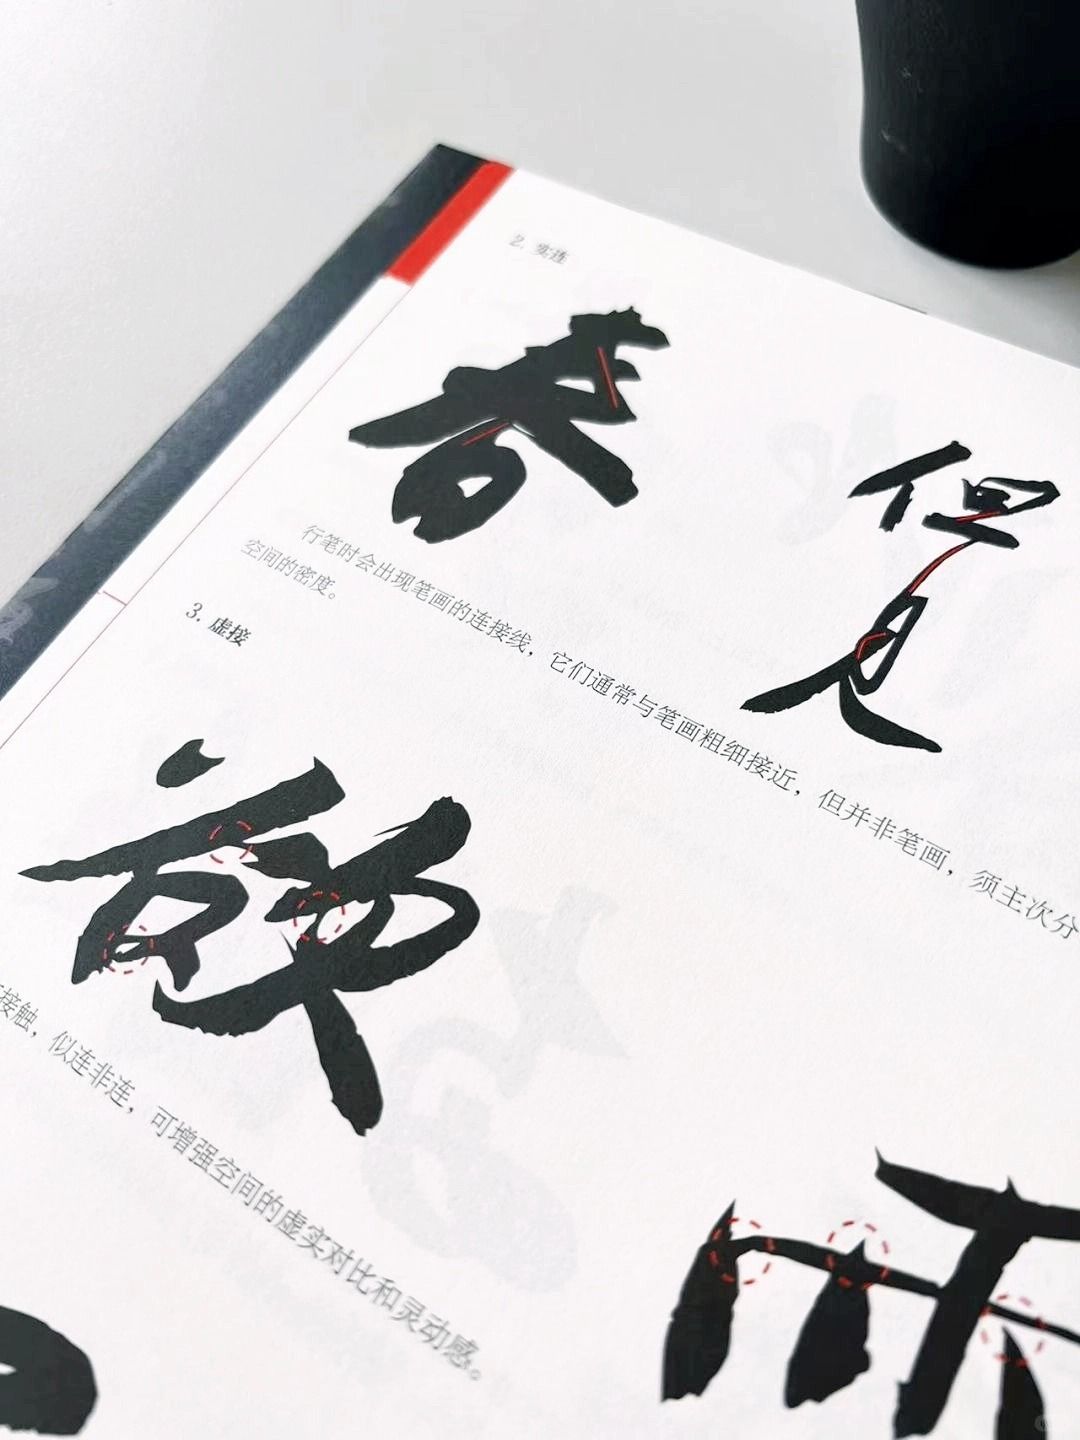 2. 实连
春
但
见
行笔时会出现笔画的连接线，它们通常与笔画粗细接近，但并非笔画，须主次分
空间的密度。
3. 虚接
欲
接触，似连非连，可增强空间的虚实对比和灵动感。
雨